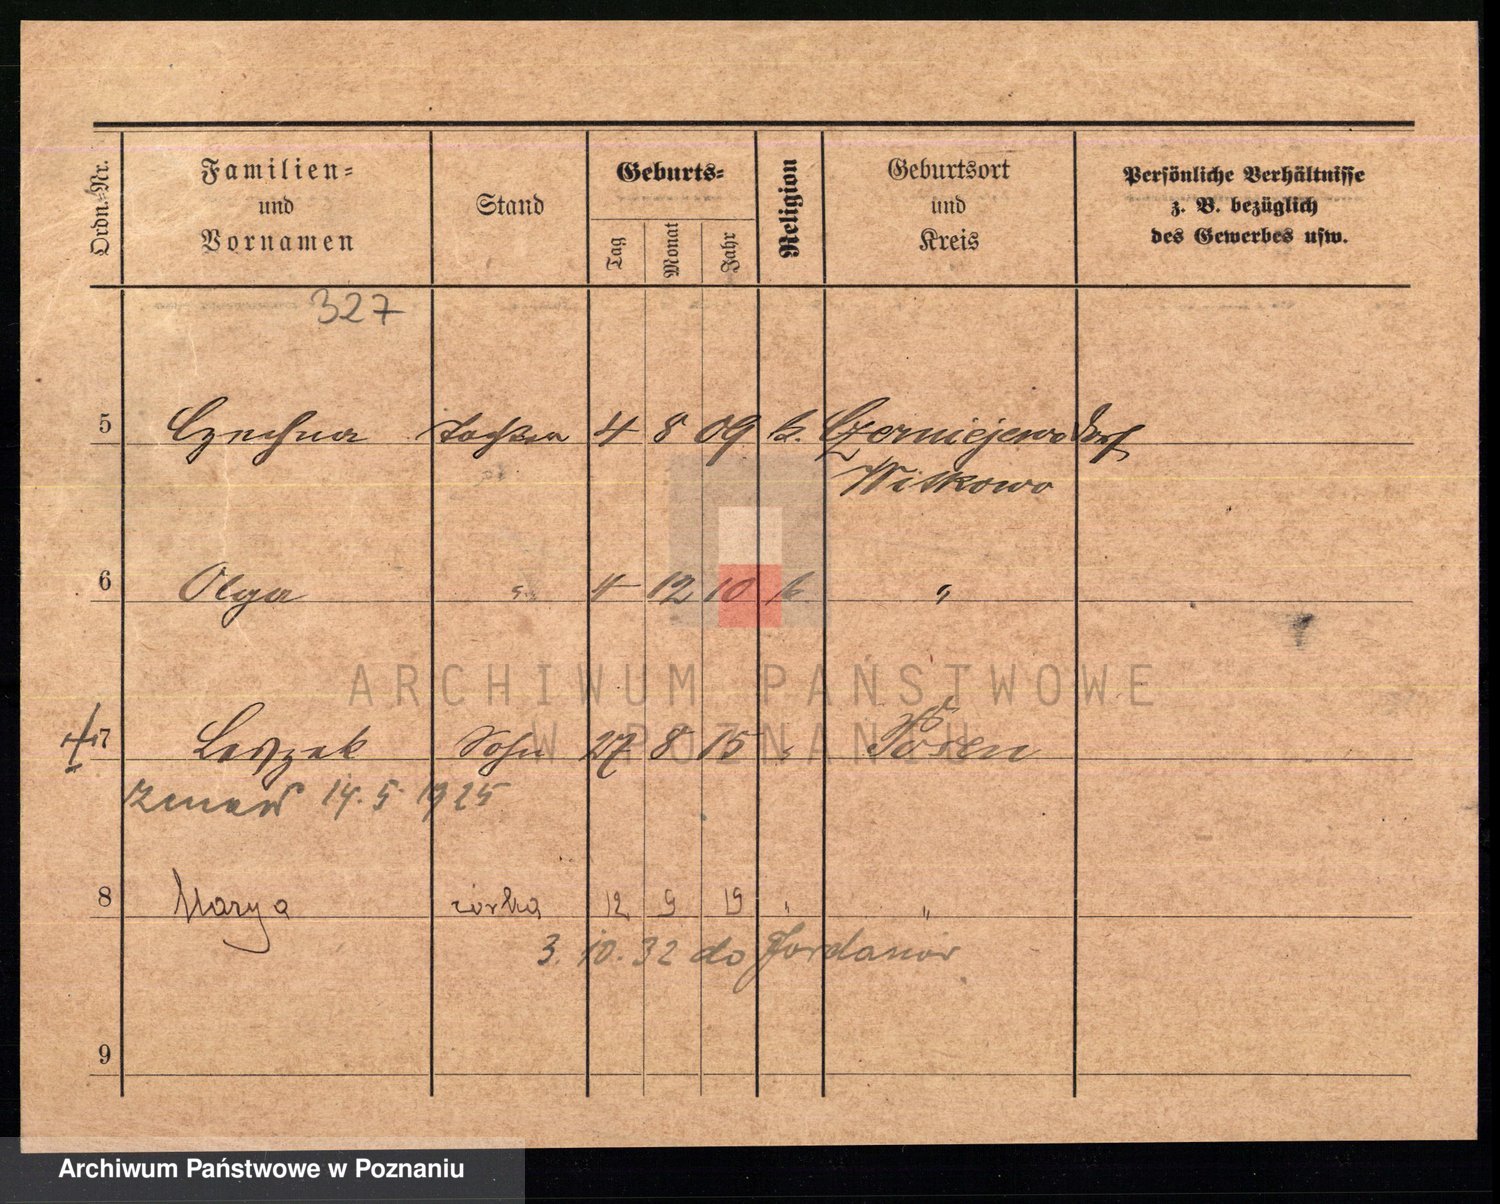 Ordn.-Nr. Familien- und Vornamen Stand Geburts- Tag Monat Jahr Religion Geburtsort und Kreis Persönliche Verhältnisse z. B. bezüglich des Gewerbes usw.
327
5 Tochter 4 8 09 k. Czerniejewo Dorf
Witkowo
6 Olga " 4 12 10 k. "
ARCHIWUM PAŃSTWOWE
W POZNANIU
7 Leszek Sohn 27 8 15 " Posen
zmarł 14. 5. 1925
8 Marya córka 12 9 19 " "
3. 10. 32 do Jordanów
9
Archiwum Państwowe w Poznaniu